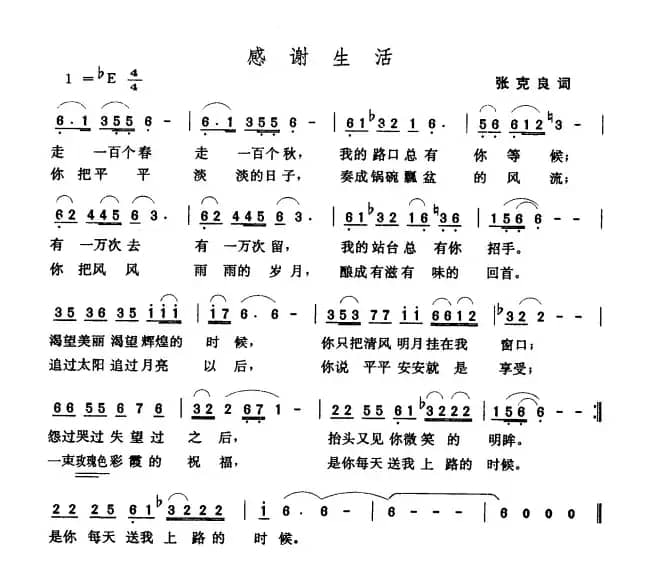 感谢生活
1 = ♭E 4/4
张克良词
6·1 355 6 - | 6·1 355 6 - | 61 ♭32 1 6· | 56 612 ♮3 - |
走 一百个春 走 一百个秋， 我的路口总有 你等候；
你把平平 淡淡的日子， 奏成锅碗瓢盆的风流；
62 445 6 3· | 62 245 6 3· | 61 ♭32 16 ♮36 | 156 6 - |
有一万次去 有一万次留， 我的站台总有你 招手。
你把风风 雨雨的岁月， 酿成有滋有味的 回首。
35 36 35 i i i | i7 6·6· | 353 77 ii 6612 | ♭32 2 - |
渴望美丽渴望辉煌的 时候， 你只把清风明月挂在我 窗口；
追过太阳追过月亮 以后， 你说平平安安就是 享受；
66 55 6 76 | 32 2 67 1 - | 22 55 61 ♭3222 | 156 6 - :‖
怨过哭过失望过 之后， 抬头又见你微笑的 明眸。
一束玫瑰色彩霞的 祝福， 是你每天送我上路的 时候。
22 25 61 ♭3222 | i 6 - - | 6 - - - | 6 0 0 0 ‖
是你每天送我上路的 时候。